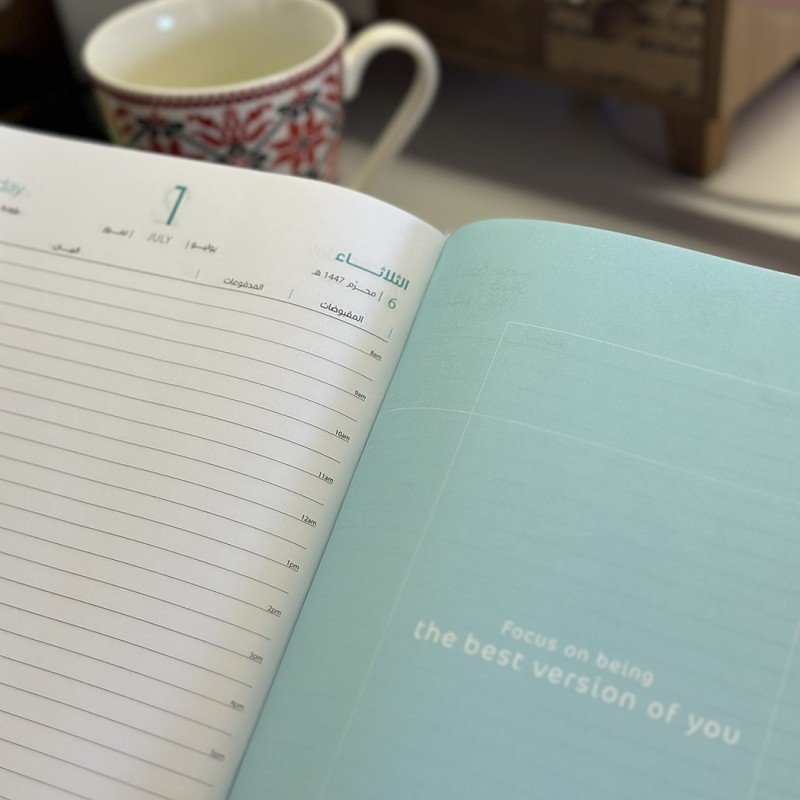 day
1
يوليو | JULY | تموز
الثلاثاء
6 | محرّم 1447 هـ
المقبوضات | المدفوعات | البيان
8am
9am
10am
11am
12am
1pm
2pm
3pm
4pm
5pm
Focus on being
the best version of you